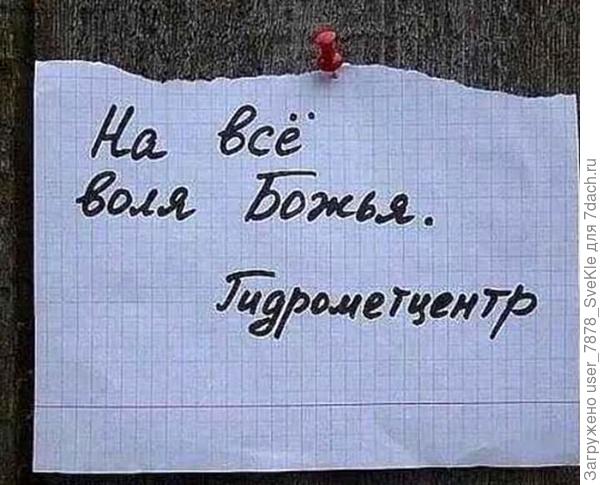 На всё
воля Божья.
Гидрометцентр
Загружено user_7878_SveKle для 7dach.ru